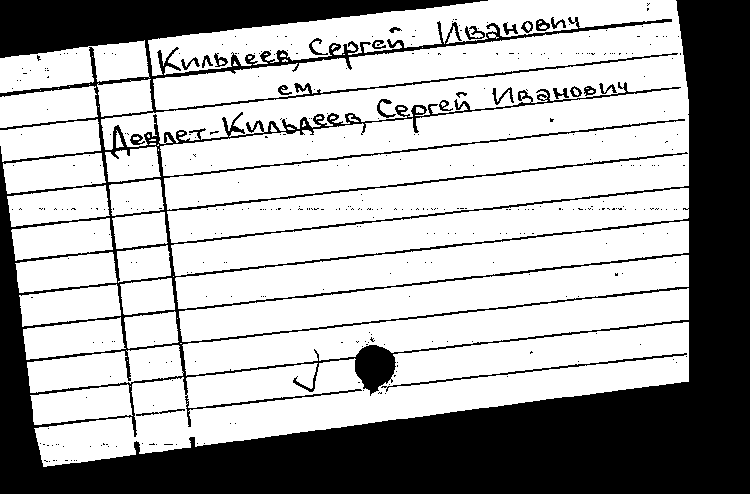 Кильдеев, Сергей Иванович
см.
Девлет-Кильдеев, Сергей Иванович